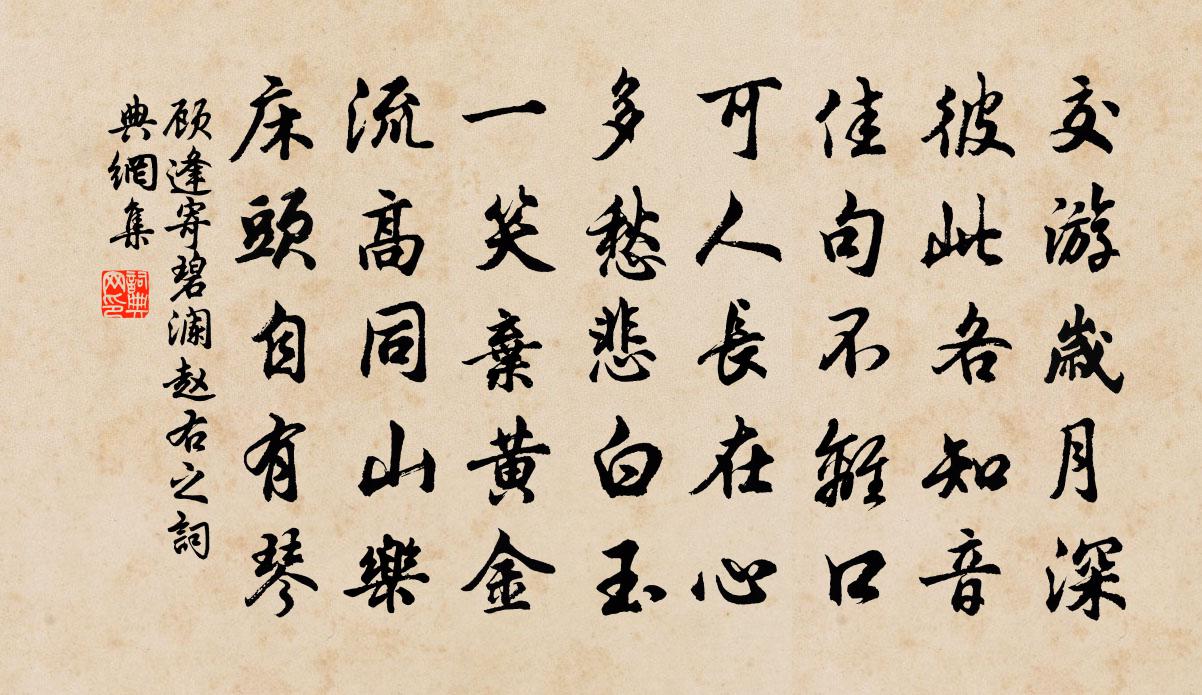 交游歲月深
彼此各知音
佳句不離口
可人長在心
多愁悲白玉
一笑棄黄金
流高同山樂
床頭自有琴
顾逢寄碧澜赵右之詞
典網集
詞典
网印